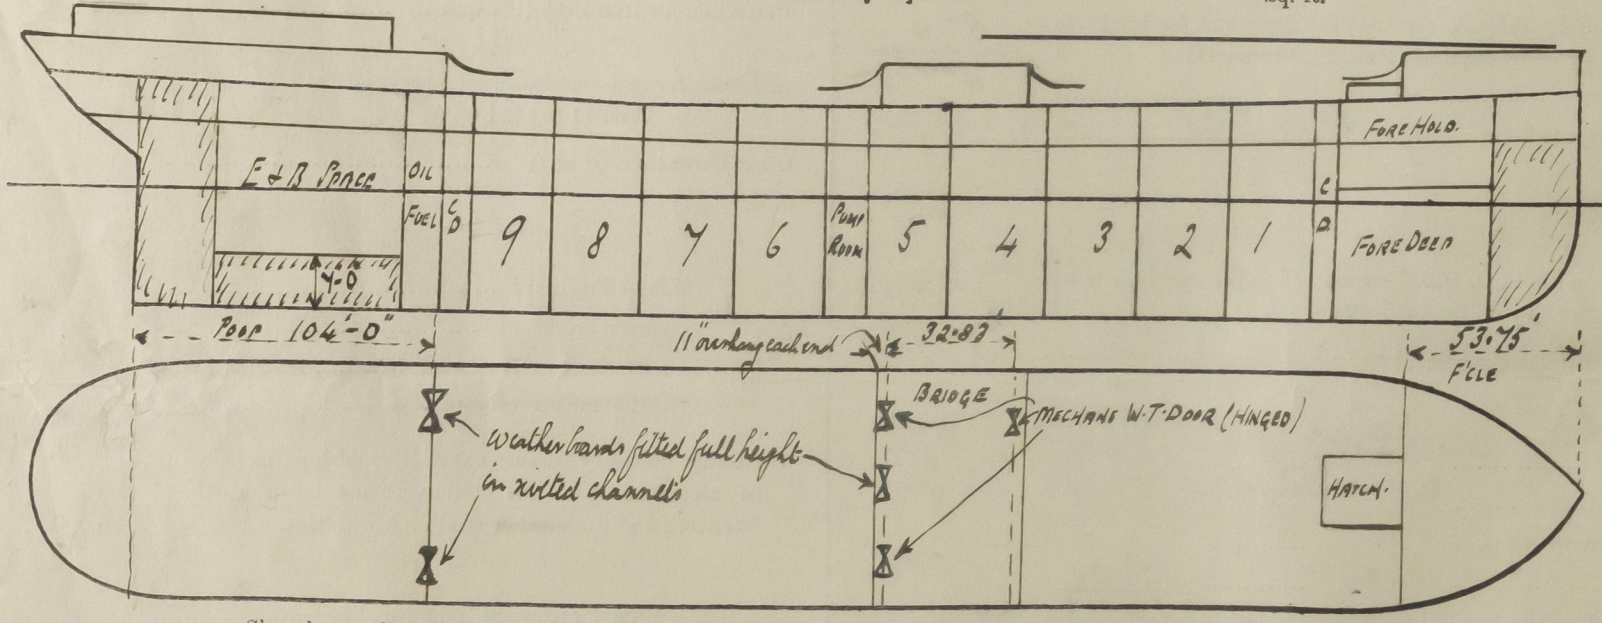 Sq. ft.
FORE HOLD.
E & B SPACE
OIL
FUEL
C
D
9
8
7
6
PUMP
ROOM
5
4
3
2
1
C
D
FORE DEEP
4-0
POOP 104'-0"
11" overhang each end
32.83'
53.75'
F'CLE
BRIDGE
MECHANE W.T. DOOR (HINGED)
Weather boards fitted full height
in riveted channels
HATCH.